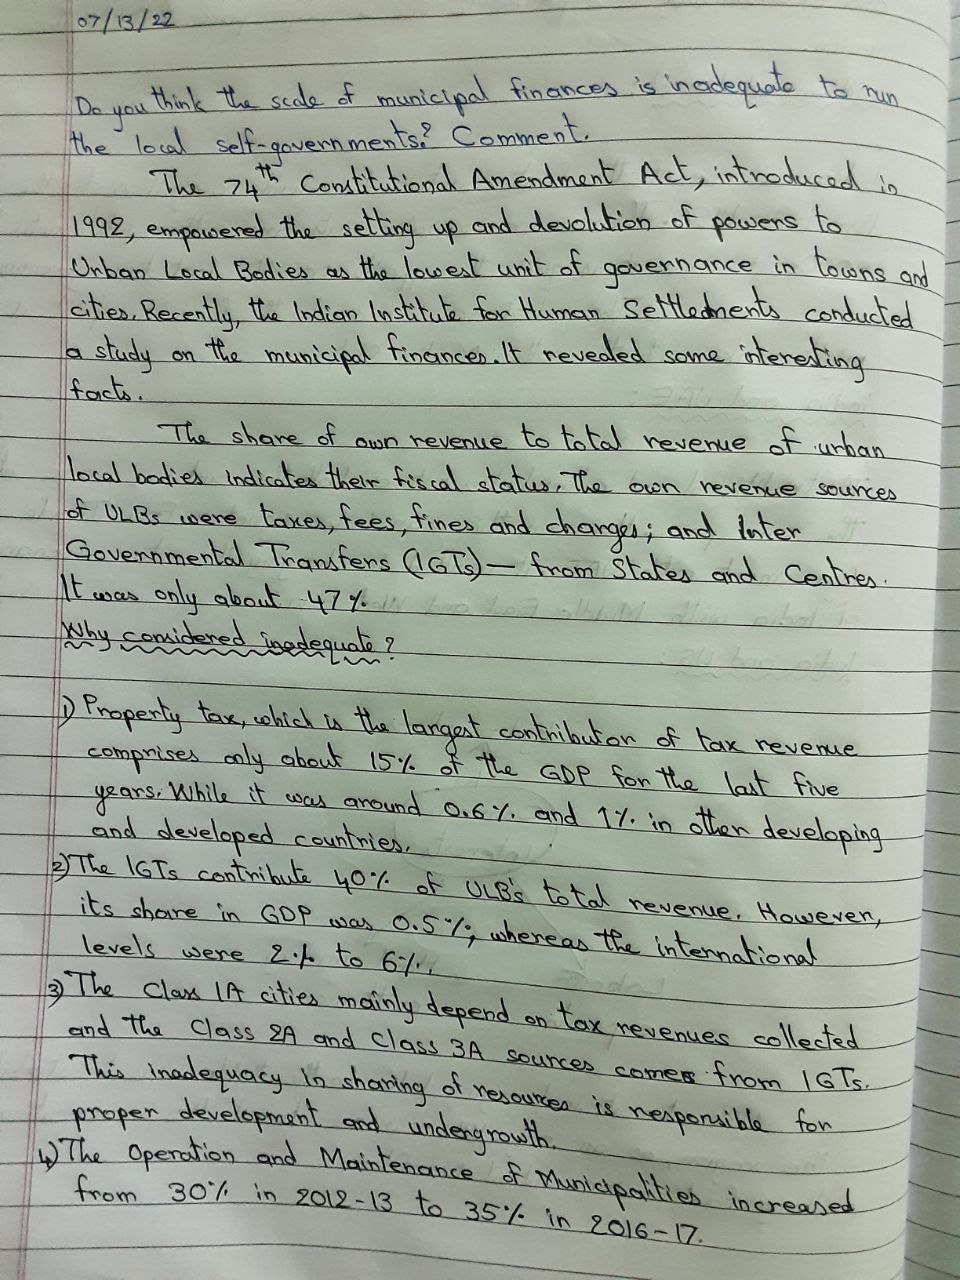 07/13/22
Do you think the scale of municipal finances is inadequate to run
the local self-governments? Comment.
The 74th Constitutional Amendment Act, introduced in
1992, empowered the setting up and devolution of powers to
Urban Local Bodies as the lowest unit of governance in towns and
cities. Recently, the Indian Institute for Human Settlements conducted
a study on the municipal finances. It revealed some interesting
facts.
The share of own revenue to total revenue of urban
local bodies indicates their fiscal status. The own revenue sources
of ULBs were taxes, fees, fines and charges; and Inter
Governmental Transfers (IGTs) — from States and Centres.
It was only about 47%
Why considered inadequate?
1) Property tax, which is the largest contributor of tax revenue
comprises only about 15% of the GDP for the last five
years. While it was around 0.6% and 1% in other developing
and developed countries.
2) The IGTs contribute 40% of ULB's total revenue. However,
its share in GDP was 0.5%, whereas the international
levels were 2% to 6%.
3) The Class 1A cities mainly depend on tax revenues collected
and the Class 2A and Class 3A sources comes from IGTs.
This inadequacy in sharing of resources is responsible for
proper development and undergrowth.
4) The Operation and Maintenance of Municipalities increased
from 30% in 2012-13 to 35% in 2016-17.